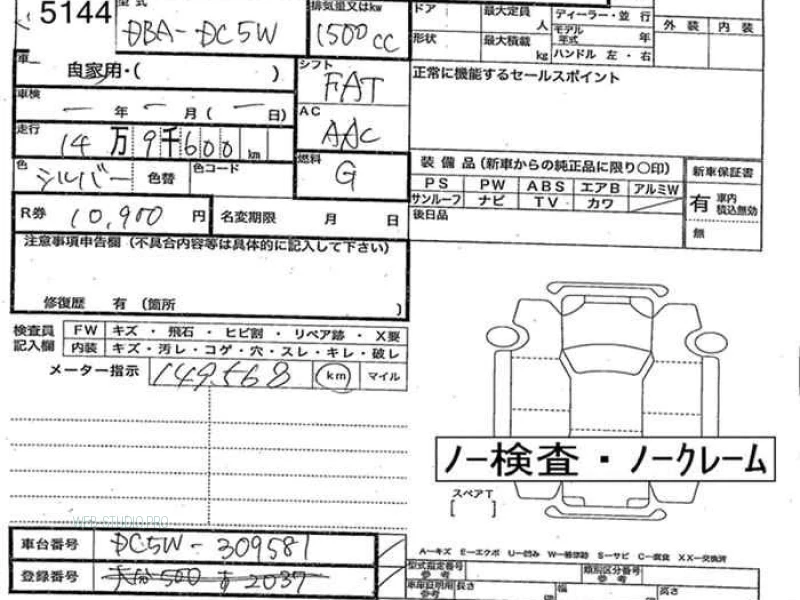 5144
型式
DBA-DC5W
排気量又はkw
1500cc
ドア
形状
最大定員
人
最大積載
kg
ディーラー・並 行
モデル
年式
年
ハンドル 左・右
外 装
内 装
自家用・( )
シフト
FAT
正常に機能するセールスポイント
車検
ー 年 ー 月 ( ー 日)
AC
AAC
走行
14万9千600km
燃料
G
色
シルバー
色替
色コード
装 備 品 (新車からの純正品に限り〇印)
PS PW ABS エアB アルミW
サンルーフ ナビ TV カワ
後日品
新車保証書
有
車内
積込無効
無
R券 10,900 円
名変期限 月 日
注意事項申告欄 (不具合内容等は具体的に記入して下さい)
修復歴 有 (箇所 )
検査員
記入欄
FW キズ ・ 飛石 ・ ヒビ割 ・ リペア跡 ・ X要
内装 キズ・汚レ・コゲ・穴・スレ・キレ・破レ
メーター指示 149568 km マイル
ノー検査・ノークレーム
スペアT
[ ]
WEB-STUDIO.PRO
車台番号 DC5W-309581
登録番号 大分500 す 2037
A−キズ E−エクボ U−凹み W−補修跡 S−サビ C−腐食 XX−交換済
型式指定番号
参 考
類別区分番号
参 考
車庫証明用
参考
長さ
幅
高さ